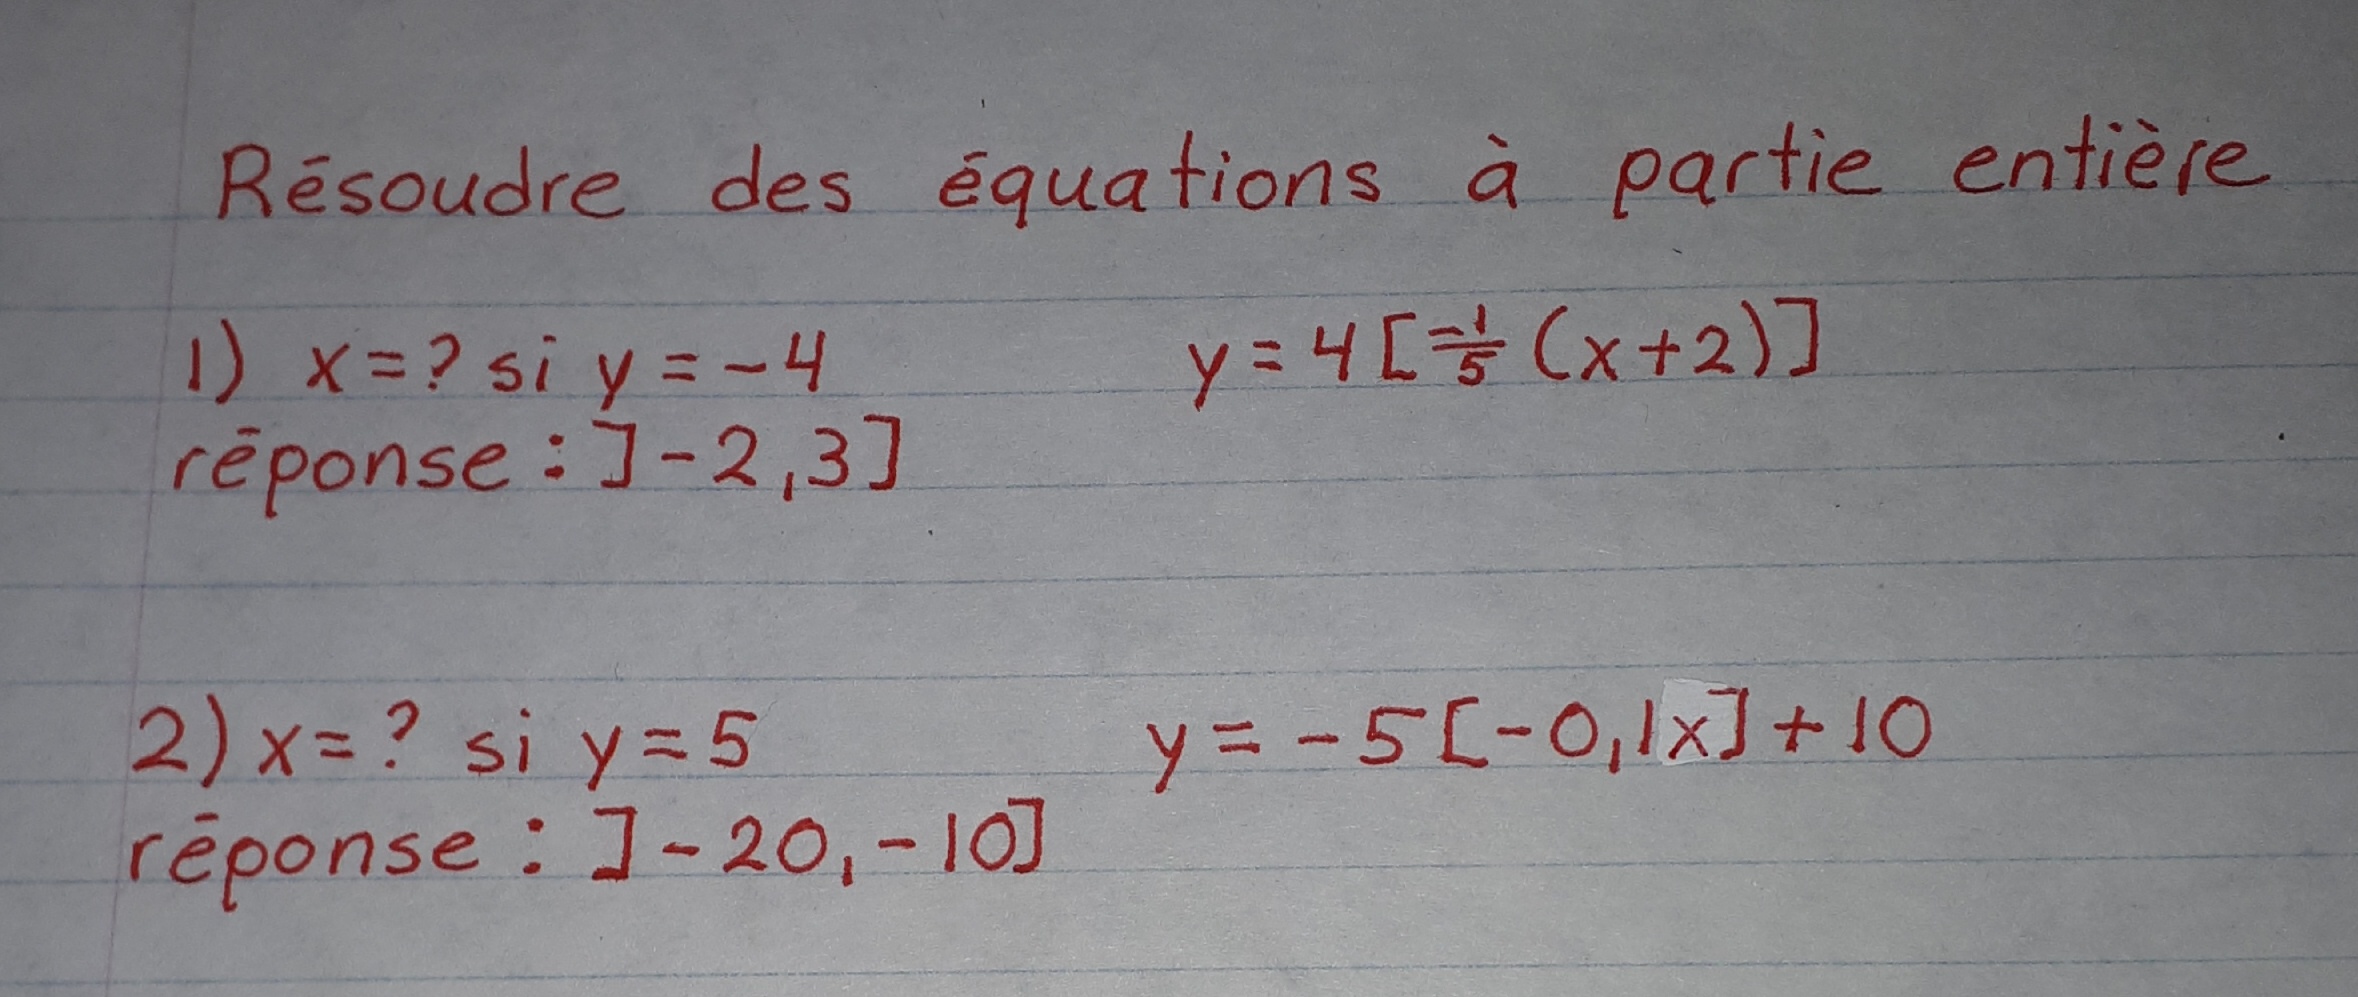 Résoudre des équations à partie entière
1) x = ? si y = -4 y = 4[-1/5 (x+2)]
réponse : ]-2,3]
2) x = ? si y = 5 y = -5[-0,1x] + 10
réponse : ]-20, -10]